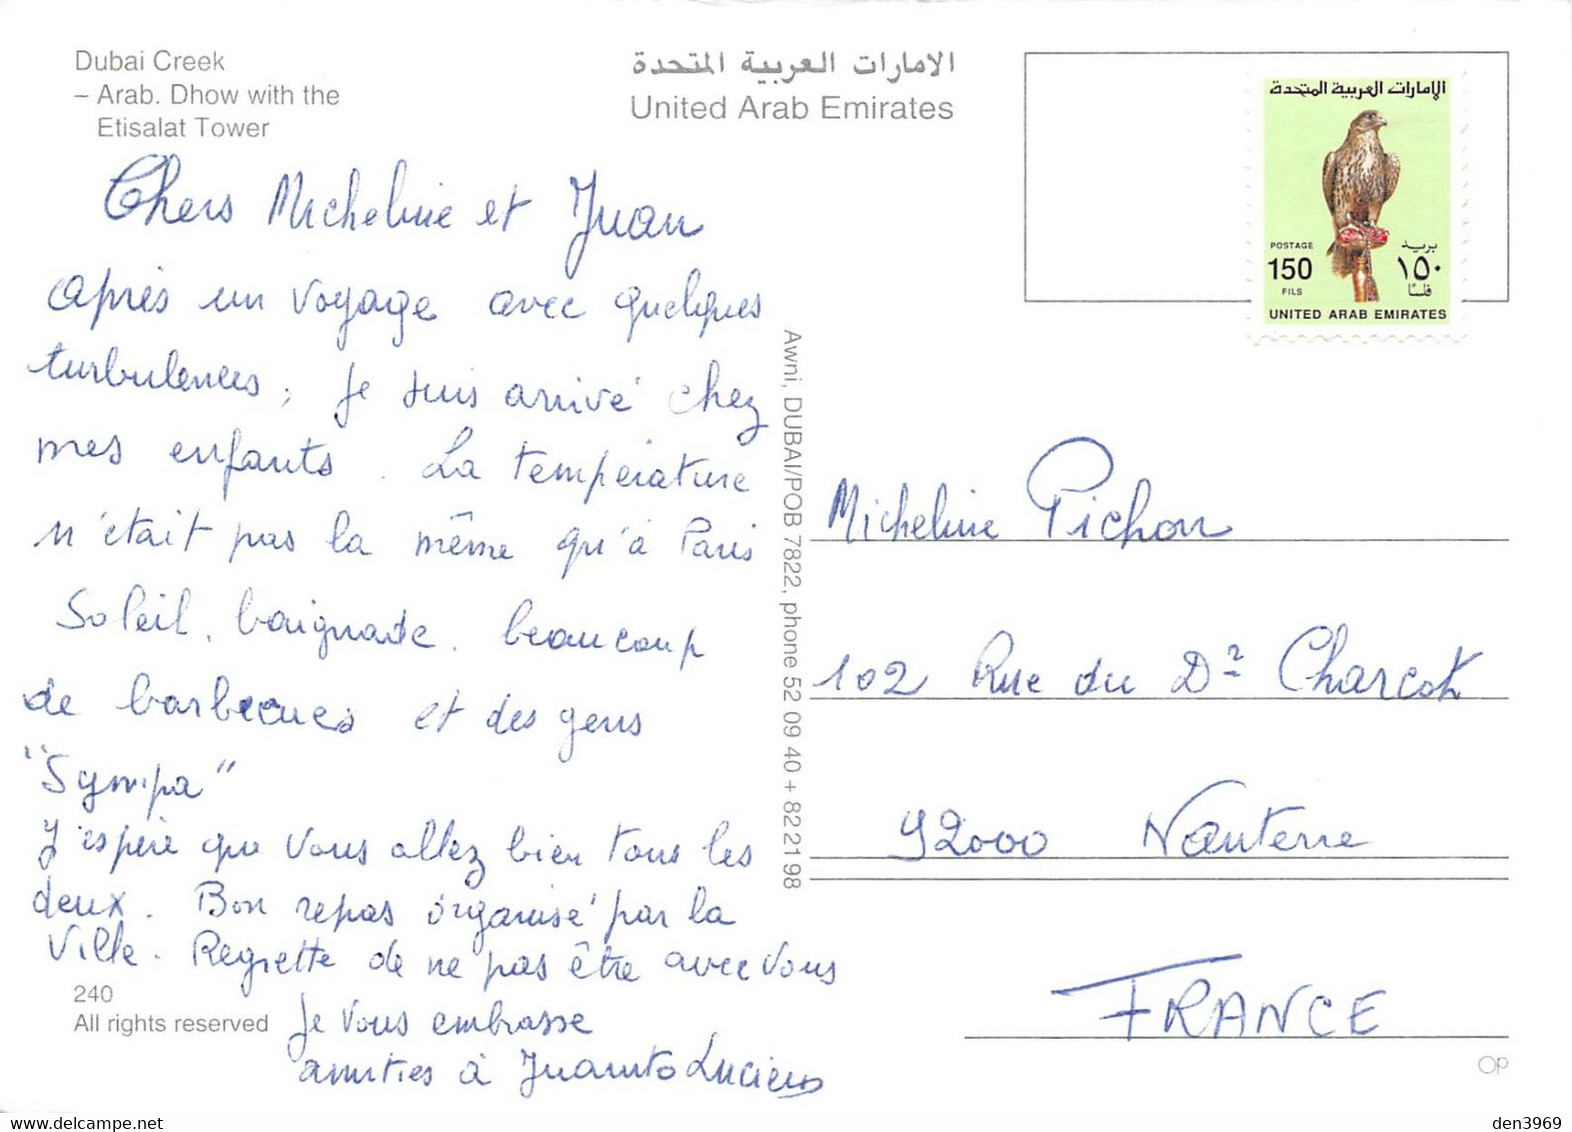 Dubai Creek
– Arab. Dhow with the
Etisalat Tower
الامارات العربية المتحدة
United Arab Emirates
الامارات العربية المتحدة
POSTAGE
بريد
150
١٥٠
FILS
فلسًا
UNITED ARAB EMIRATES
Chers Micheline et Juan
après un voyage avec quelques
turbulences, je suis arrivé chez
mes enfants. La température
n'était pas la même qu'à Paris
Soleil, baignade, beaucoup
de barbecues et des gens
"Sympa"
J'espère que vous allez bien tous les
deux. Bon repas organisé par la
Ville. Regrette de ne pas être avec vous
Je vous embrasse
amitiés à Juanito Lucien
240
All rights reserved
Awni, DUBAI/POB 7822, phone 52 09 40 + 82 21 98
Micheline Pichon
102 Rue du Dr Charcot
92000 Nanterre
FRANCE
OP
den3969